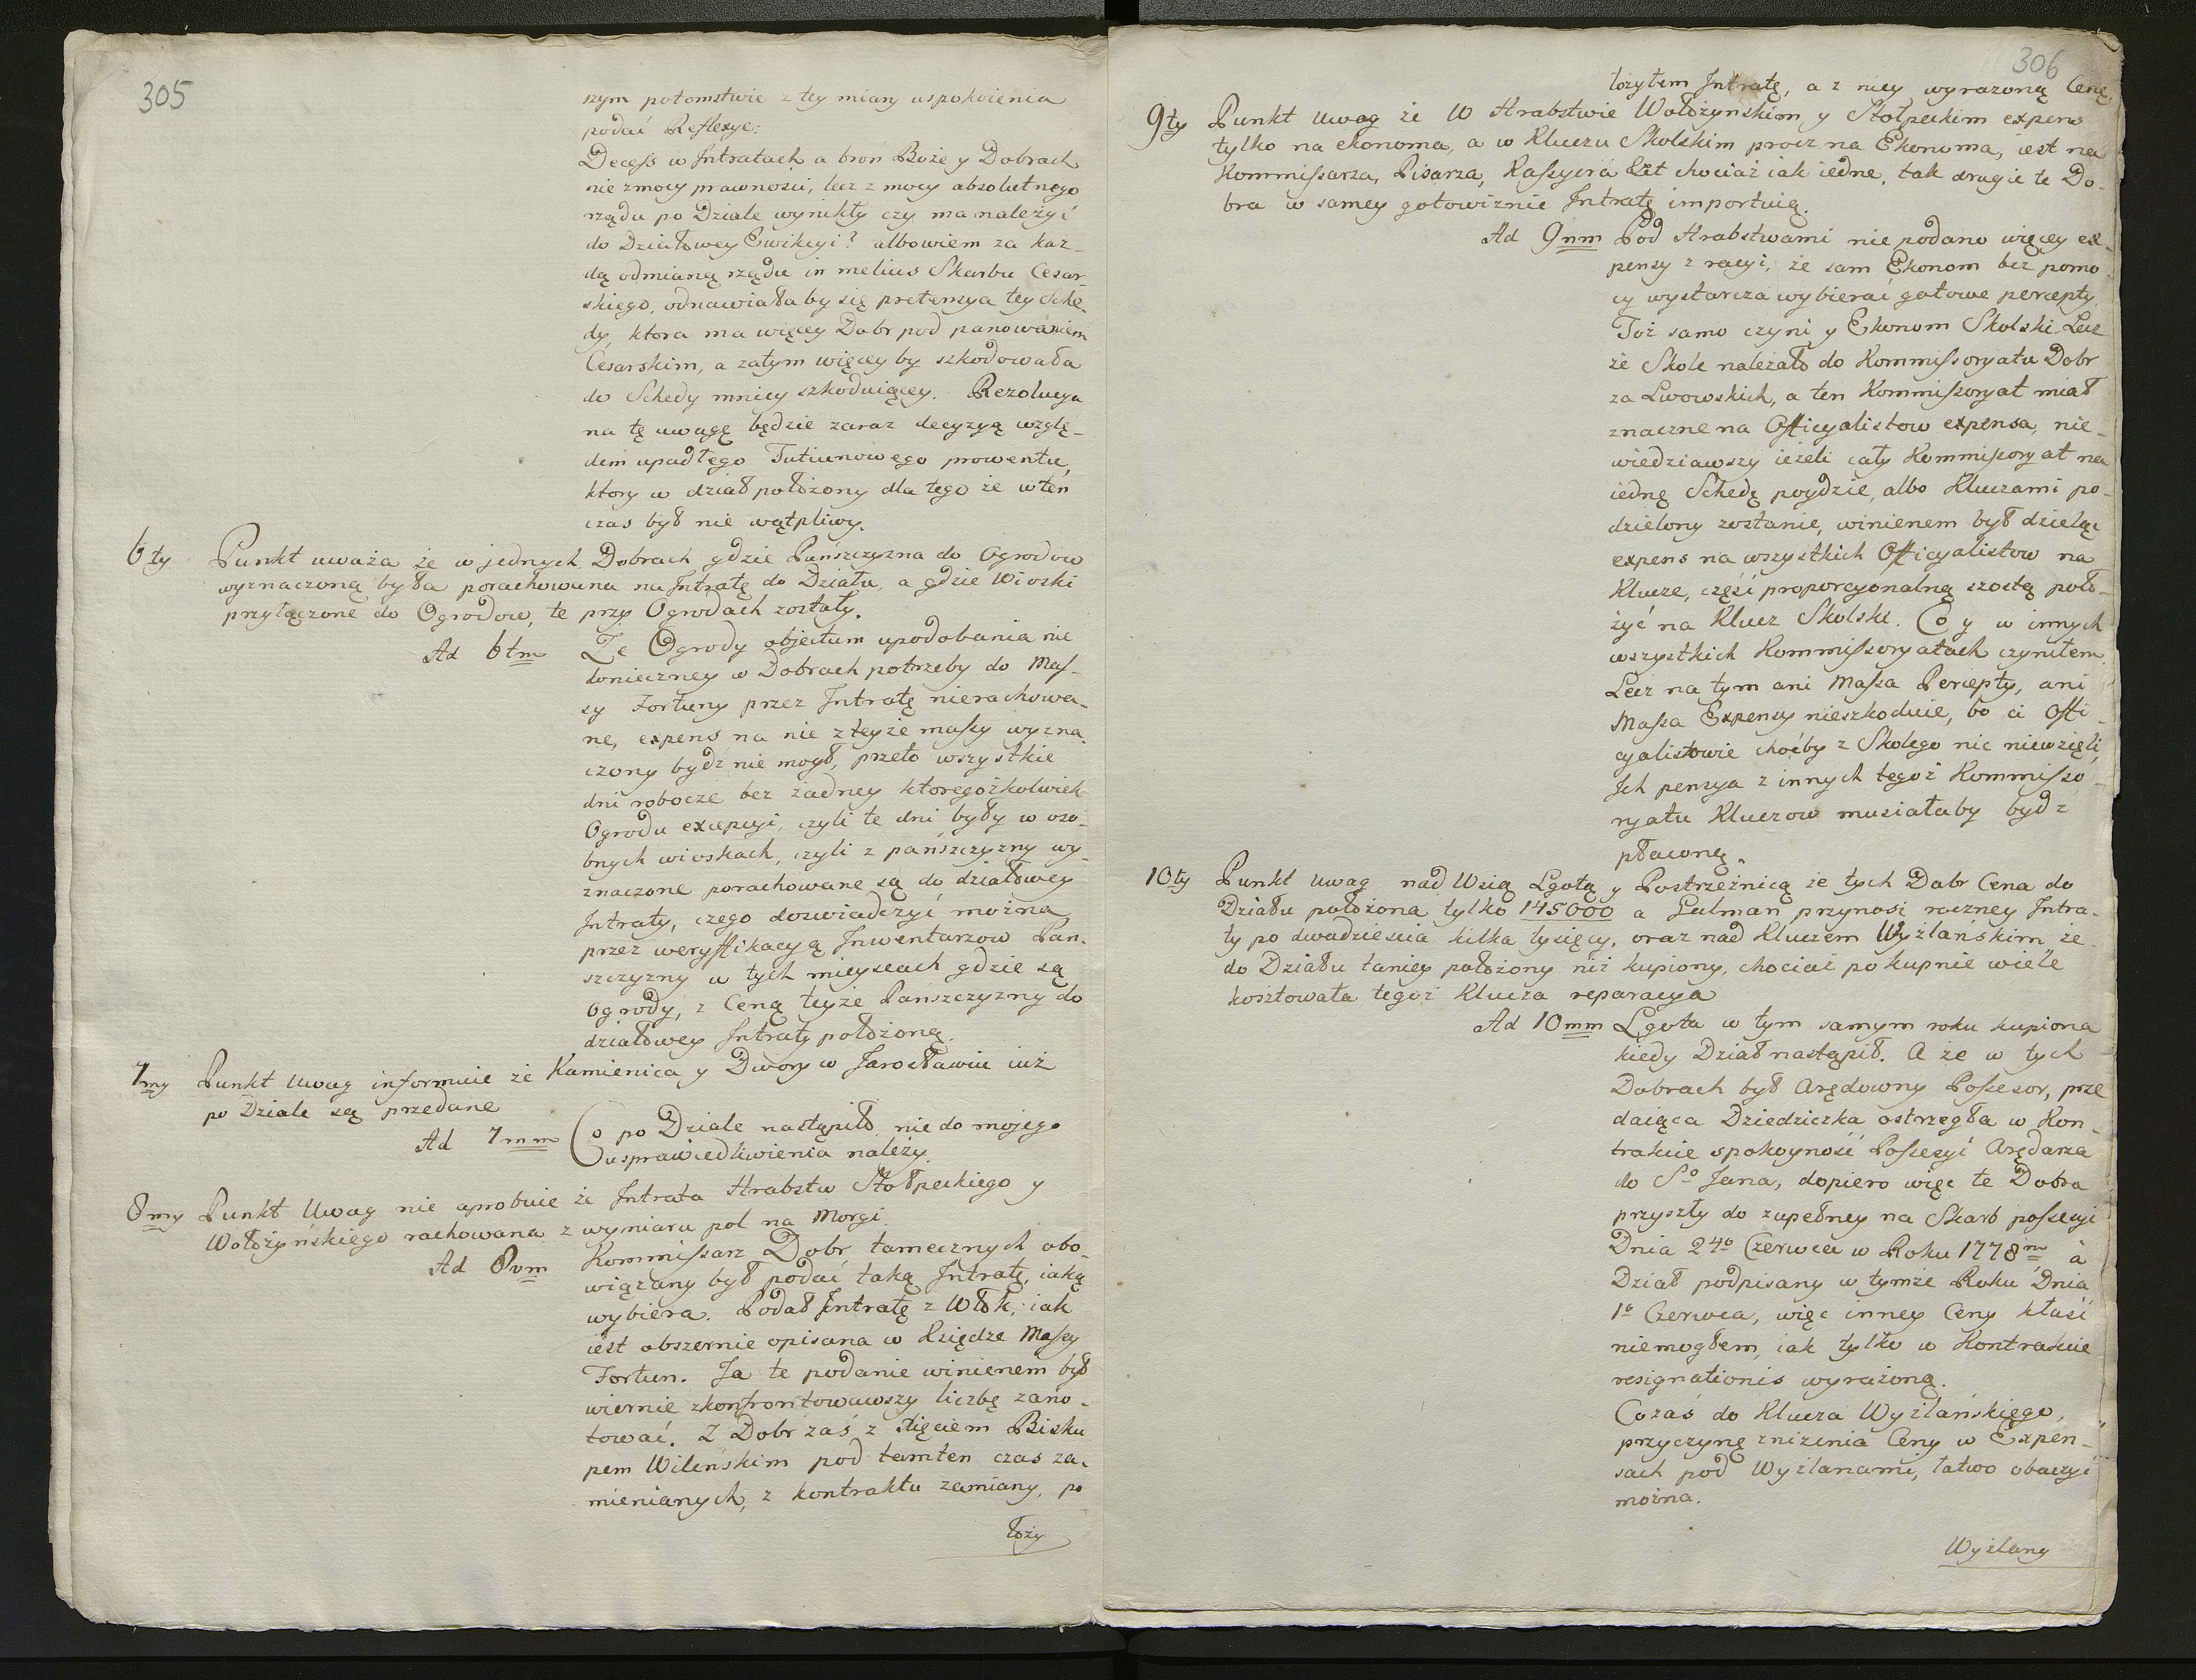 305
szym potomstwie z tey miary uspokoienia
podać Reflexye:
Decess w Intratach a broń Boże y Dobrach
nie z mocy prawności, lecz z mocy absolutnego
rządu po Dziale wynikły czy ma należyć
do Działowey Ewikcyi? albowiem za każ-
dą odmianą rządu in melius Skarbu Cesar-
skiego, odnawiałaby się pretensya tey Sche-
dy, ktora ma więcey Dobr pod panowaniem
Cesarskim, a zatym więcey by szkodowała
do Schedy mniey szkoduiącey. Rezolucya
na tę uwagę będzie zaraz decyzyą wzglę-
dem upadłego Tutiunowego prowentu,
ktory w dział położony dla tego że w ten
czas był nie wątpliwy.
6ty Punkt uważa że w jednych Dobrach gdzie Panszczyzna do Ogrodow
wyznaczoną była porachowana na Intratę do Działu, a gdzie Wioski
przyłączone do Ogrodow, te przy Ogrodach zostały.
Ad 6tm Że Ogrody objectum upodobania nie
konieczney w Dobrach potrzeby do Mas-
sy Fortuny przez Intratę nierachowa-
ne, expens na nie z teyże massy wyzna-
czony bydź nie mogł, przeto wszystkie
dni robocze bez żadney ktoregożkolwiek
Ogrodu excepcyi, czyli te dni były w oso-
bnych wioskach, czyli z pańszczyzny wy-
znaczone porachowane są do działowey
Intraty, czego doswiadczyć można
przez weryffikacyą Inwentarzow Pan-
szczyzny w tych mieyscach gdzie są
ogrody, z Ceną teyże Pańszczyzny do
działowey Intraty położoną.
7my Punkt Uwag informuie że Kamienica y Dwory w Jarosławiu iuż
po Dziale są przedane
Ad 7mm Co po Dziale nastąpiło nie do mojego
usprawiedliwienia należy.
8my Punkt Uwag nie aprobuie że Intrata Hrabstw Stołpeckiego y
Wołożyńskiego rachowana z wymiaru pol na Morgi.
Ad 8vm Kommissarz Dobr tamecznych obo-
wiązany był podać taką Intratę, iaką
wybiera. Podał Intratę z Włok, iak
iest obszernie opisana w Księdze Massy
Fortun. Ja te podanie winienem był
wiernie zkonfrontowawszy liczbę zano-
tować. Z Dobr zaś z Xięciem Bisku
pem Wileńskim pod tamten czas za-
mienianych, z kontraktu zamiany, po
łoży
306
łożyłem Intratę, a z niey wyrazoną Cenę.
9ty Punkt uwag że w Hrabstwie Wołożynskim y Stołpeckim expens
tylko na ekonoma, a w Kluczu Skolskim procz na Ekonoma, iest na
Kommissarza, Pisarza, Kassyera &t chociaż iak iedne, tak drugie te Do-
bra w samey gotowiznie Intratę importuią.
Ad 9nm Pod Hrabstwami nie podano więcey ex-
pensy z racyi, że sam Ekonom bez pomo-
cy wystarcza wybierać gotowe percepty.
Toż samo czyni y Ekonom Skolski. Lecz
że Skole należało do Kommissoryatu Dobr
za Lwowskich, a ten Kommissoryat miał
znaczne na Officyalistow expensa, nie-
wiedziawszy ieżeli cały Kommissoryat na
iednę Schedę poydzie, albo Kluczami po-
dzielony zostanie, winienem był dzieląc
expens na wszystkich Officyalistow na
Klucze, część proporcyonalną szostą poło-
żyć na Klucz Skolski. Co y w innych
wszystkich Kommissoryatach czyniłem.
Lecz na tym ani Massa Percepty, ani
Massa Expensy nieszkoduie, bo ci Offi-
cyalistowie choćby z Skolego nic niewzięli,
Ich pensya z innych tegoż Kommisso-
ryatu Kluczow musiałaby bydź
płaconą.
10ty Punkt Uwag nad Wsią Lgotą y Postrzeżnicą że tych Dobr Cena do
Działu położona tylko 145000 a Galman przynosi roczney Intra-
ty po dwadziescia kilka tysięcy, oraz nad Kluczem Wyżlańskim, że
do Działu taniey położony niż kupiony, chociaż po kupnie wiele
kosztowała tegoż Klucza reparacya
Ad 10mm Lgota w tym samym roku kupiona
kiedy Dział nastąpił. A że w tych
Dobrach był Arędowny Possesor, prze
daiąca Dziedziczka ostrzegła w Kon-
trakcie spokoyność Possesyi Arędarza
do So Jana, dopiero więc te Dobra
przyszły do zupełney na Skarb possesyi
Dnia 24o Czerwca w Roku 1778m à
Dział podpisany w tymże Roku Dnia
1o Czerwca, więc inney Ceny kłaść
niemogłem, iak tylko w Kontrakcie
resignationis wyrażoną.
Cozaś do Klucza Wyżlańskiego,
przyczynę zniżenia Ceny w Expen-
sach pod Wyżlanami, łatwo obaczyć
można.
Wyżlany